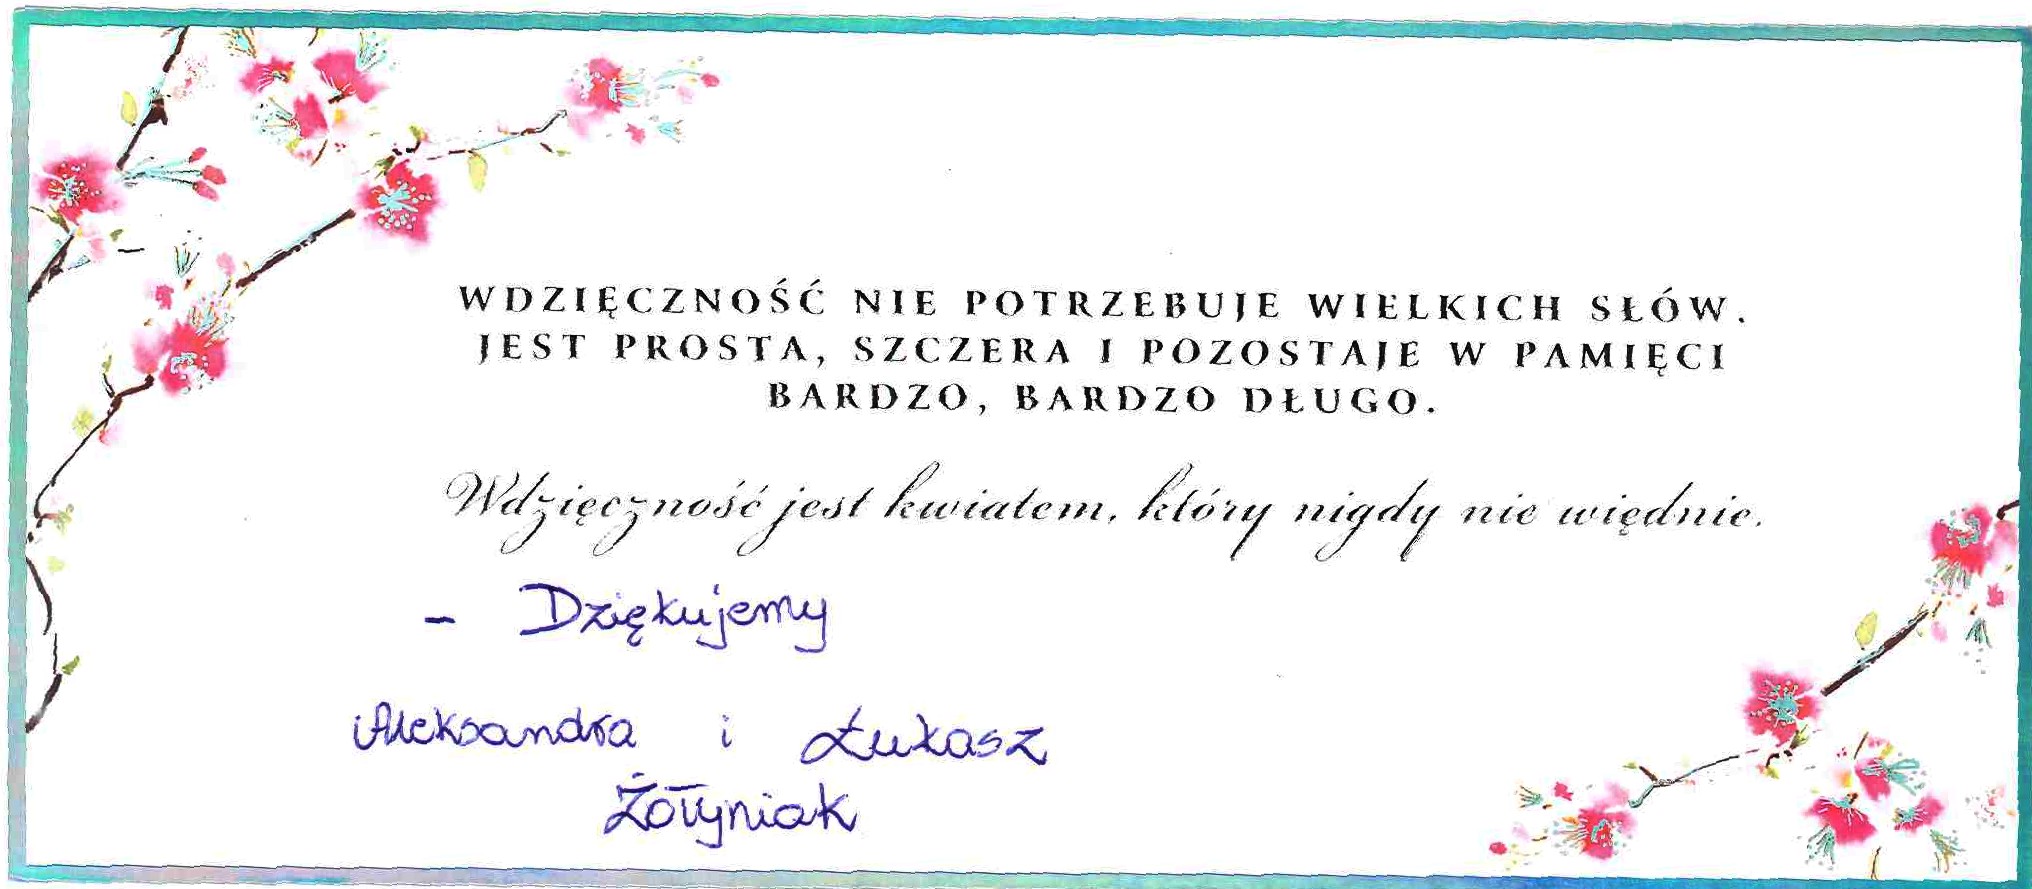 WDZIĘCZNOŚĆ NIE POTRZEBUJE WIELKICH SŁÓW.
JEST PROSTA, SZCZERA I POZOSTAJE W PAMIĘCI
BARDZO, BARDZO DŁUGO.
Wdzięczność jest kwiatem, który nigdy nie więdnie.
- Dziękujemy
Aleksandra i Łukasz
Żołyniak